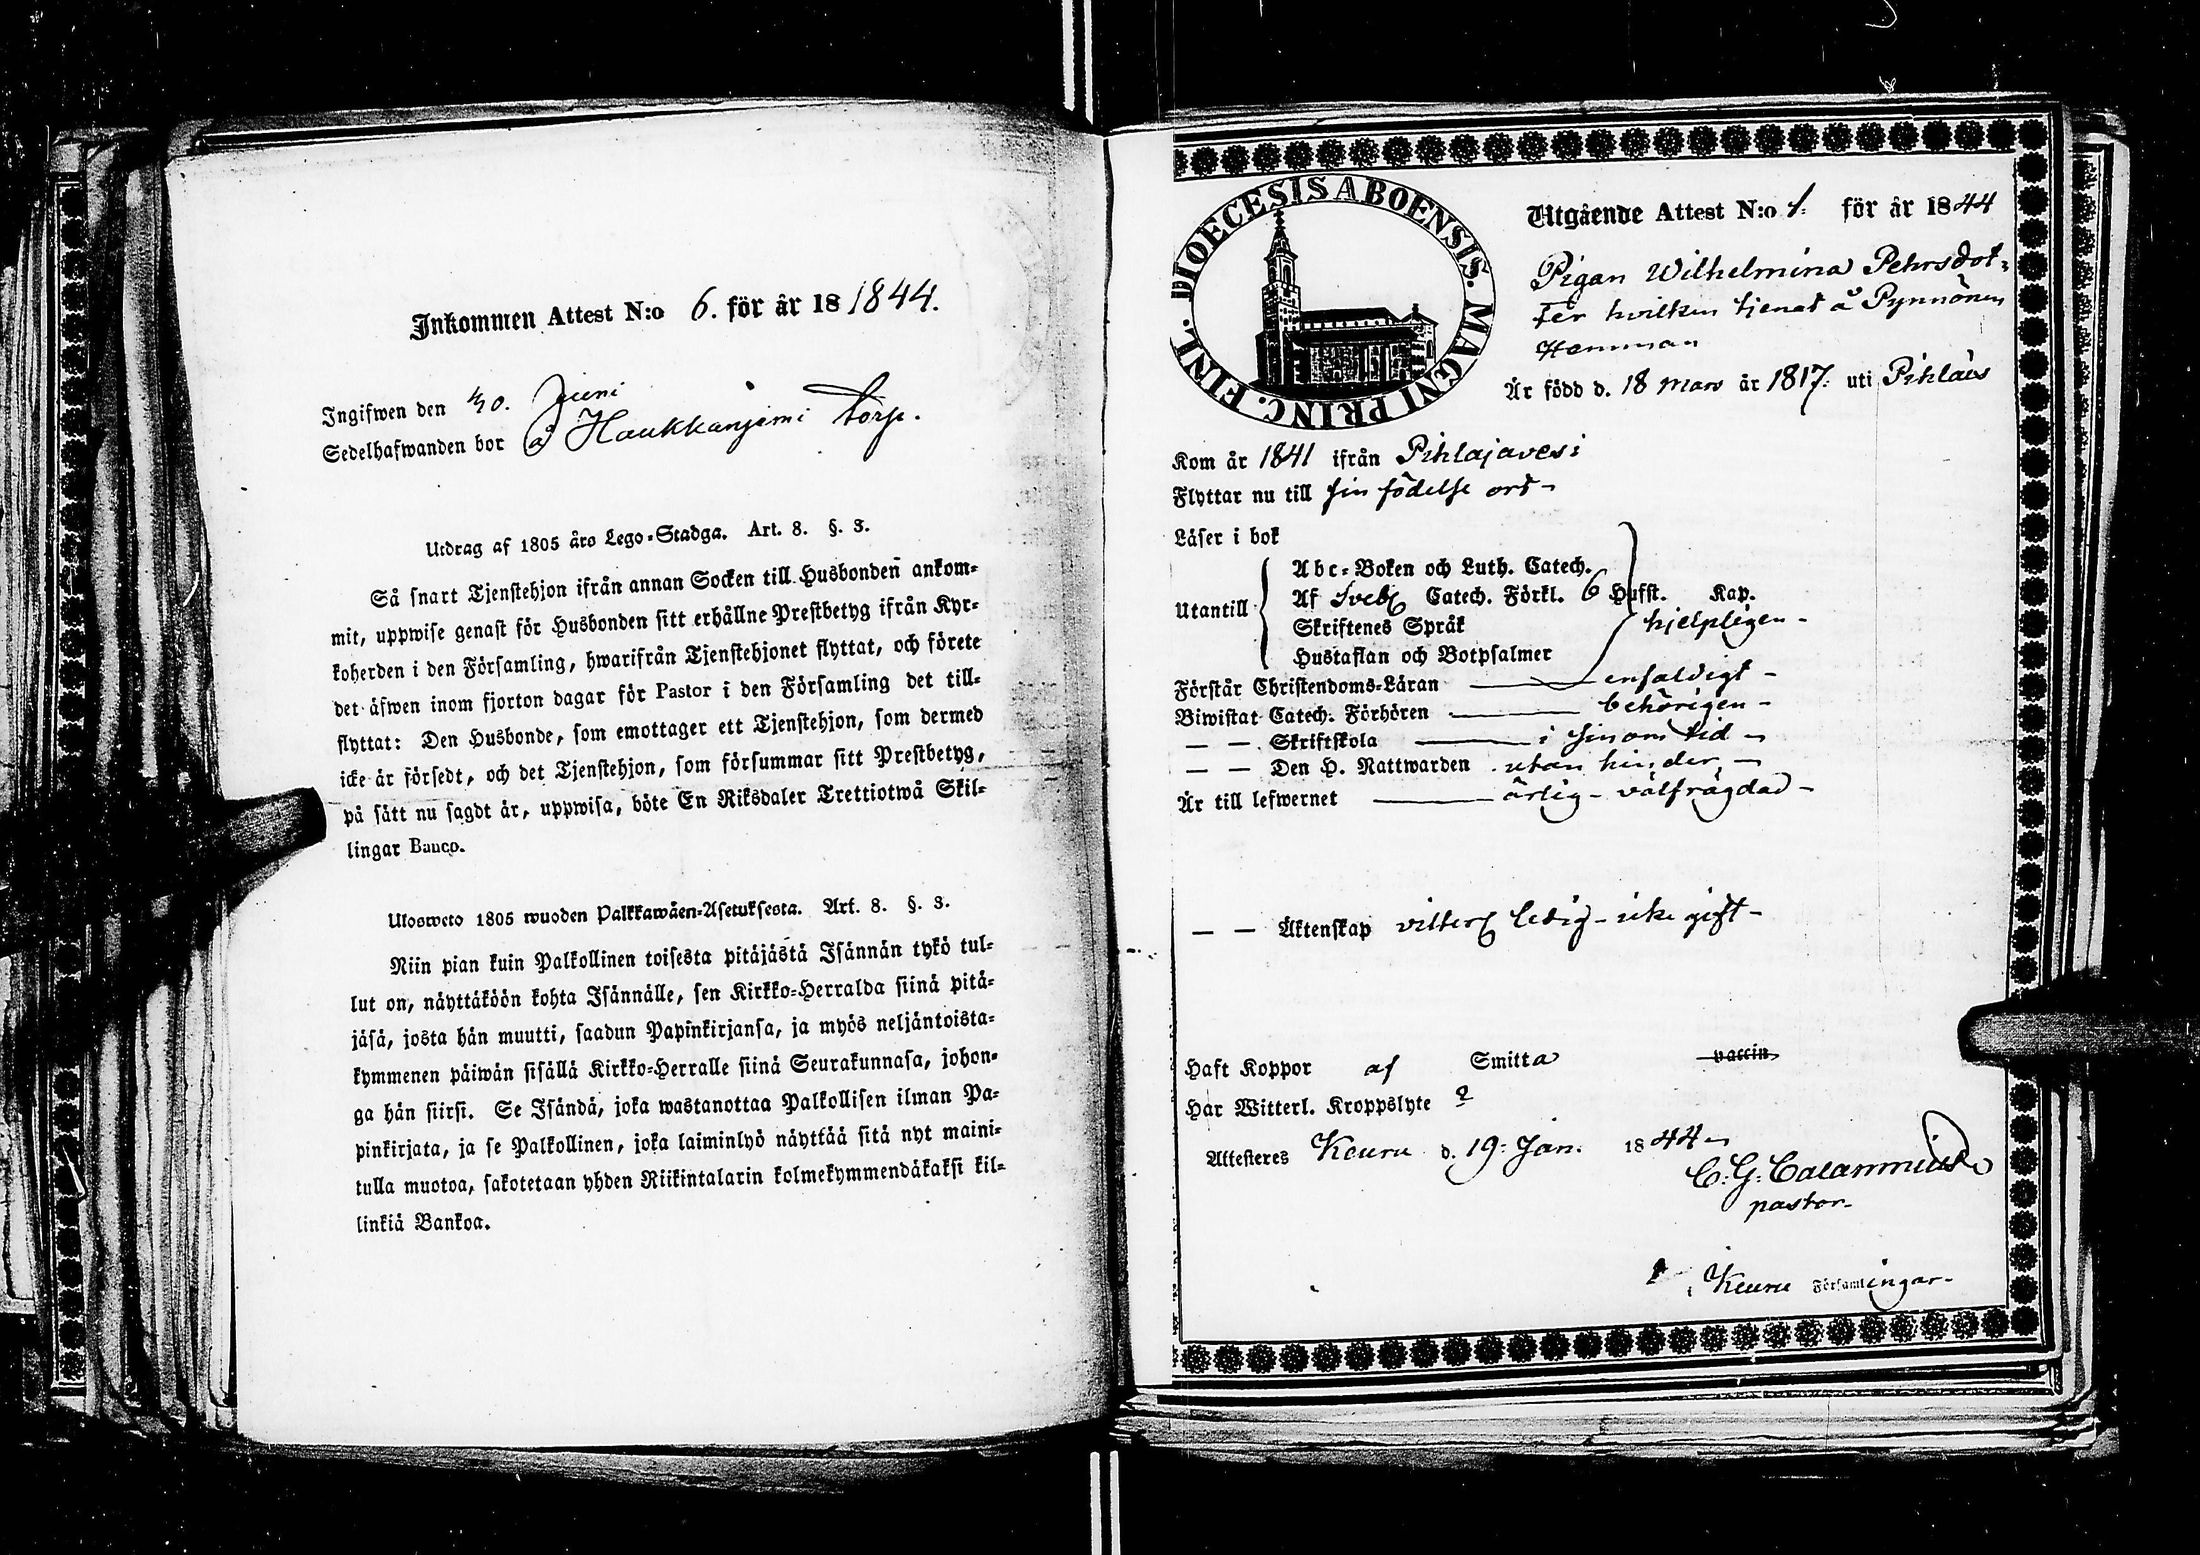 Inkommen Attest N:o 6. för år 18 1844.
Ingifwen den 30. Juni
Sedelhafwanden bor å Haukkanjemi torp.
Utdrag af 1805 års Lego-Stadga. Art. 8. §. 3.
Så snart Tjenstehjon ifrån annan Socken till Husbonden ankom-
mit, uppwise genast för Husbonden sitt erhållne Prestbetyg ifrån Kyr-
koherden i den Församling, hwarifrån Tjenstehjonet flyttat, och förete
det äfwen inom fjorton dagar för Pastor i den Församling det till-
flyttat: Den Husbonde, som emottager ett Tjenstehjon, som dermed
icke är försedt, och det Tjenstehjon, som försummar sitt Prestbetyg,
på sätt nu sagdt är, uppwisa, böte En Riksdaler Trettiotwå Skil-
lingar Banco.
Ulosweto 1805 wuoden Palkkawäen-Asetuksesta. Art. 8. §. 3.
Niin pian kuin Palkollinen toisesta pitäjästä Isännän tykö tul-
lut on, näyttäköön kohta Isännälle, sen Kirkko-Herralda siinä pitä-
jäsä, josta hän muutti, saadun Papinkirjansa, ja myös neljäntoista-
kymmenen päiwän sisällä Kirkko-Herralle siinä Seurakunnasa, johon-
ga hän siirsi. Se Isändä, joka wastanottaa Palkollisen ilman Pa-
pinkirjata, ja se Palkollinen, joka laiminlyö näyttää sitä nyt maini-
tulla muotoa, sakotetaan yhden Riikintalarin kolmekymmendäkaksi kil-
linkiä Bankoa.
DIOECESIS ABOENSIS. MAGNI PRINC. FINL.
Utgående Attest N:o 1: för år 1844
Pigan Wilhelmina Pehrsdot-
ter hvilken tjenat å Pynnönen
Hemman
Är född d. 18 Mars år 1817: uti Pihlavs
Kom år 1841 ifrån Pihlajavesi
Flyttar nu till sin födelse ort-
Läser i bok
Utantill
Abc-Boken och Luth. Catech.
Af Sveb Catech. Förkl. 6 Hufst. Kap.
Skriftenes Språk hjelpligen-
Hustaflan och Botpsalmer
Förstår Christendoms-Läran enfaldigt-
Biwistat Catech. Förhören behörigen-
— — Skriftskola i sinom tid-
— — Den H. Nattwarden utan hinder-
Är till lefwernet ärlig- välfrägdad-
— — Äktenskap vitterl ledig- icke gift-
Haft Koppor af Smitta vaccin
Har Witterl. Kroppslyte 0
Attesteres Keuru d. 19: Jan. 1844-
C: G: Calamnius
pastor-
i Keuru Församlingar-